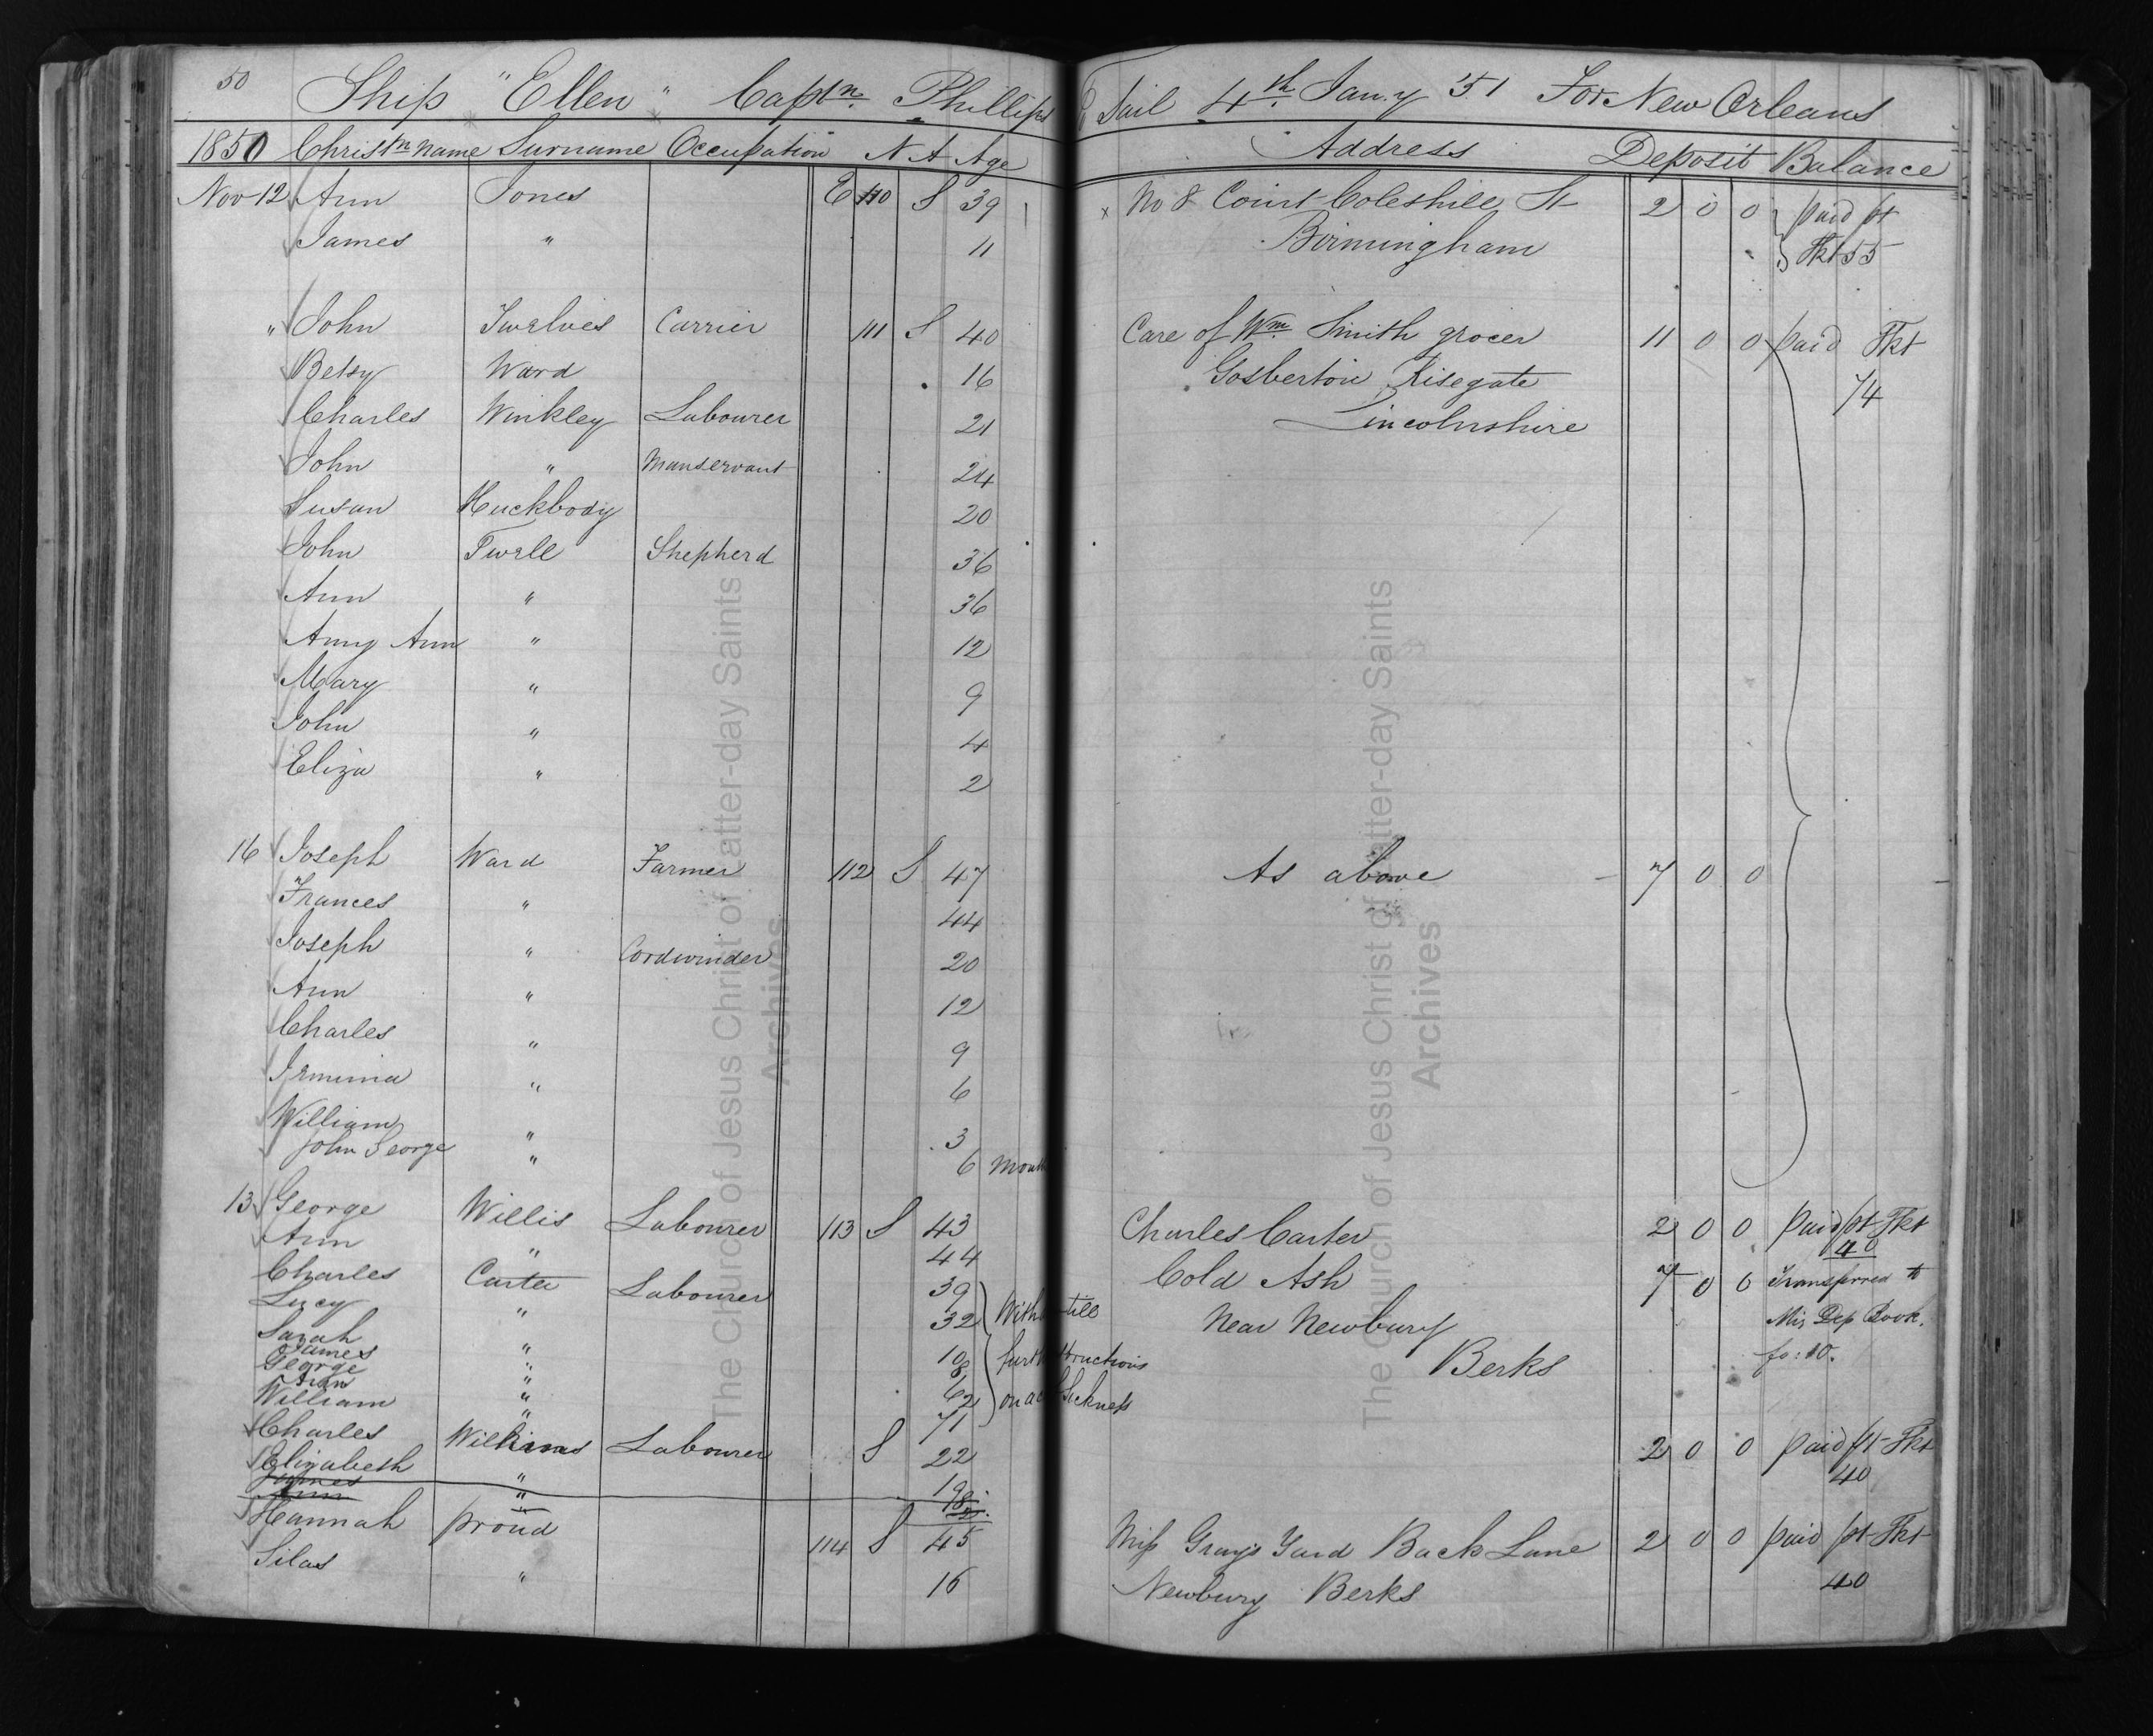 50 Ship "Ellen" Captn. Phillips To Sail 4th Jan.y 51 For New Orleans
1850 Christn Name Surname Occupation N A Age Address Deposit Balance
Nov 12 Ann Jones E 110 S 39 x No 8 Court Coleshill St 2 0 0 paid pt
James " 11 Birmingham Tkt 55
" John Twelves Carrier 111 S 40 Care of Wm. Smith grocer 11 0 0 paid Tkt
Betsy Ward 16 Gosberton Risegate 74
Charles Winkley Labourer 21 Lincolnshire
John " Manservant 24
Susan Huckbody 20
John Twell Shepherd 36
Ann " 36
Amy Ann " 12
Mary " 9
John " 4
Eliza " 2
16 Joseph Ward Farmer 112 S 47 As above 7 0 0
Frances " 44
Joseph " Cordwinder 20
Ann " 12
Charles " 9
Jemima " 6
William " 3
John George " 6 month
13 George Willis Labourer 113 S 43 Charles Carter 2 0 0 Paid pt Tkt
Ann " 44 Cold Ash 40
Charles Carter Labourer 39 7 0 0 Transferred to
Lucy " 32 With till Near Newbury Mis Dep Book.
Sarah " 10 furth structions Berks fo: 10.
James " 8
George " 6 on ac Sickness
Ann " 2
William " 71
Charles Williams Labourer S 22 2 0 0 paid pt Tkt
Elizabeth " 19 40
James "
Ann "
Hannah Proud 114 S 45 Miss Grays Yard Back Lane 2 0 0 paid pt Tkt
Silas " 16 Newbury Berks 40
The Church of Jesus Christ of Latter-day Saints
Archives
The Church of Jesus Christ of Latter-day Saints
Archives